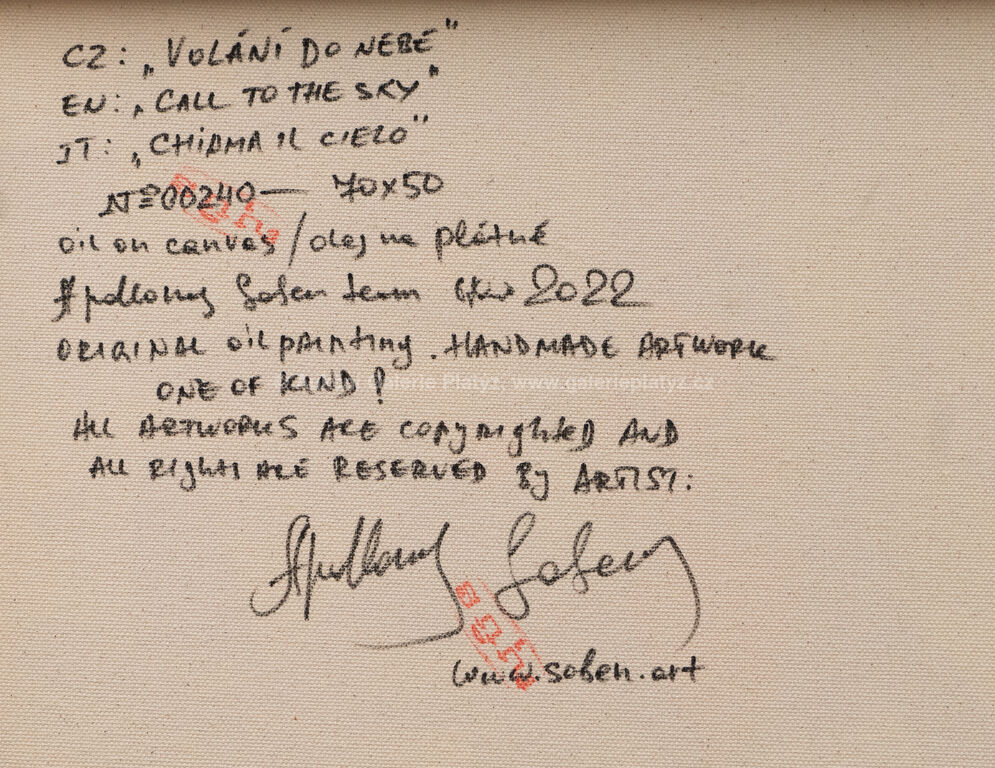 CZ: „VOLÁNÍ DO NEBE"
EN: „CALL TO THE SKY"
IT: „CHIAMA IL CIELO"
Nº 00240 — 70x50
oil on canvas / olej na plátně
Apollonas Soben 2022
ORIGINAL oil painting. HANDMADE ARTWORK
ONE OF KIND!
Galerie Platýz, www.galerieplatyz.cz
All ARTWORKS ARE copyrighted AND
All rights ARE RESERVED By ARTIST:
Soben
www.soben.art